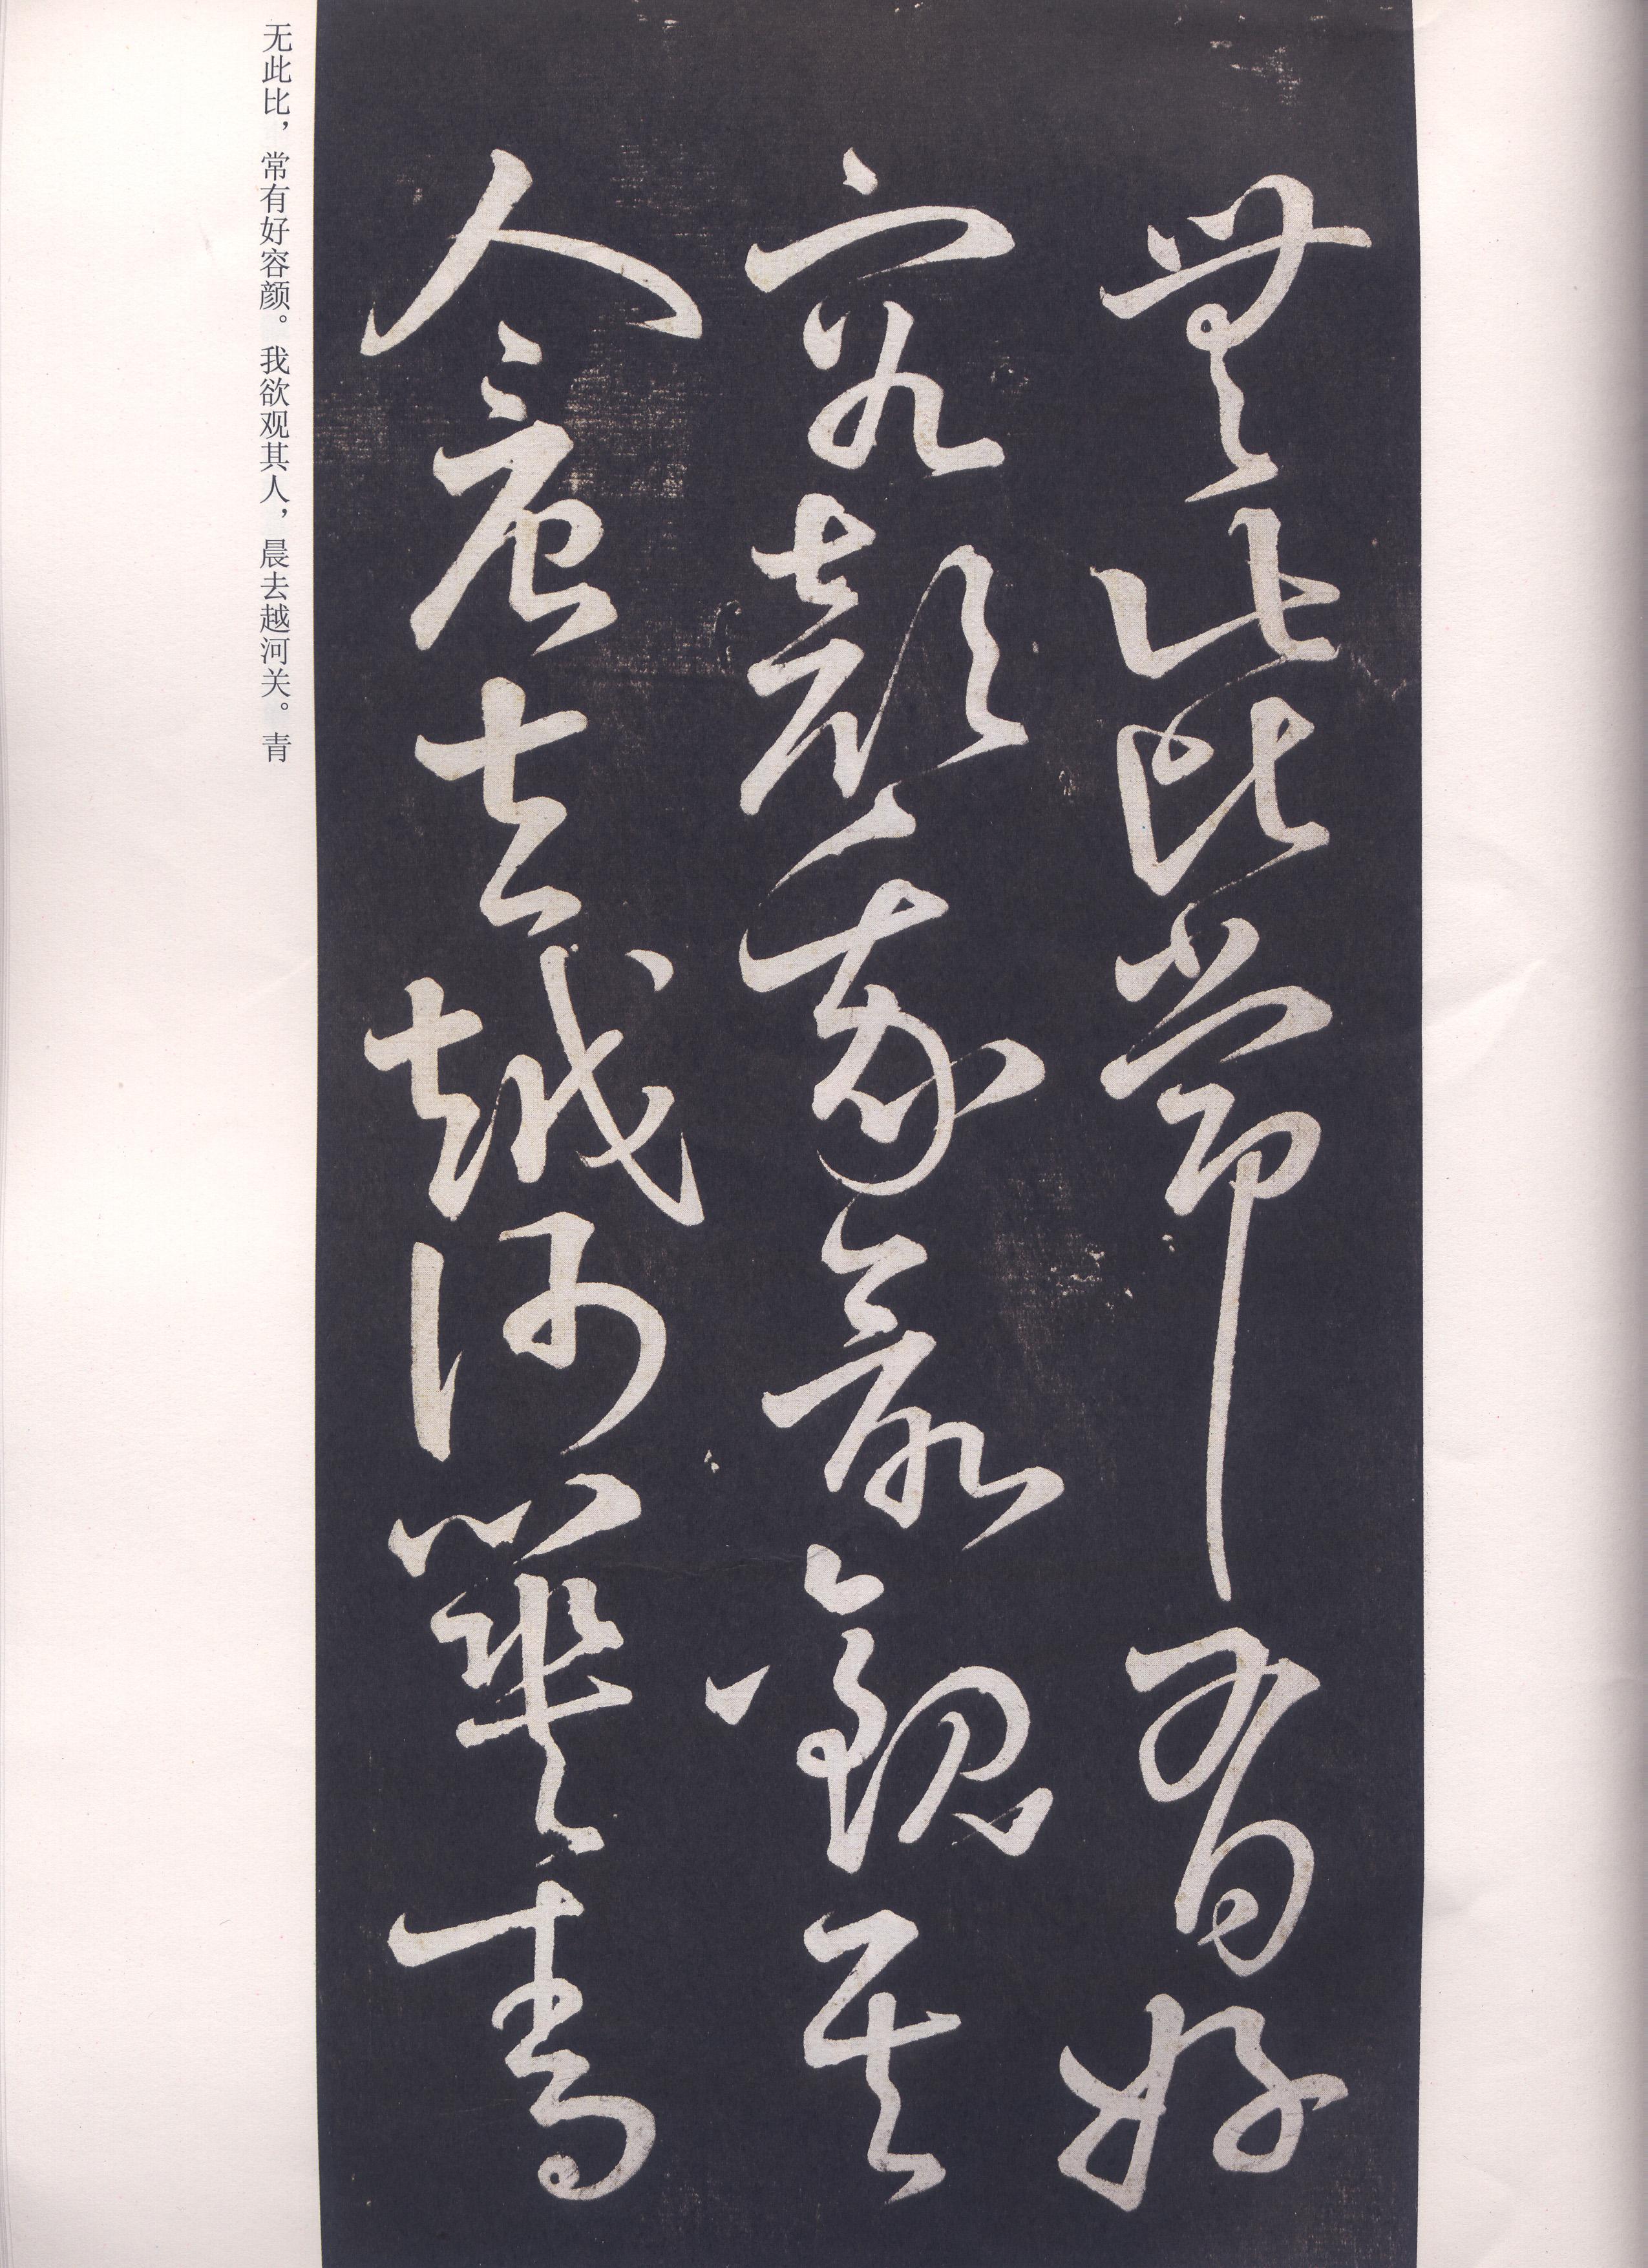 無此比常有好
容顏我欲觀其
人晨去越河關青
无此比，常有好容颜。我欲观其人，晨去越河关。青